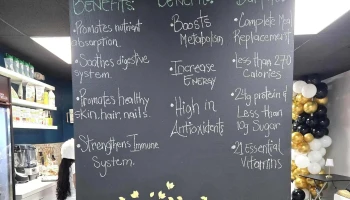 BENEFITS:
•Promotes nutrient
absorption.
•Soothes digestive
system.
•Promotes healthy
skin, hair, nails.
•Strengthens Immune
System.
•Boosts
Metabolism
•Increase
Energy
•High in
Antioxidants
•Complete Meal
Replacement
•less than 270
Calories
•24g protein &
Less than
10g Sugar
•21 Essential
Vitamins